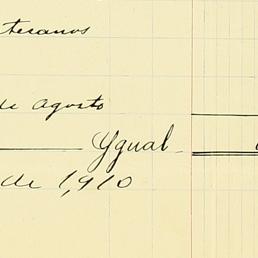 teranos
de agosto
Ygual
de 1,910